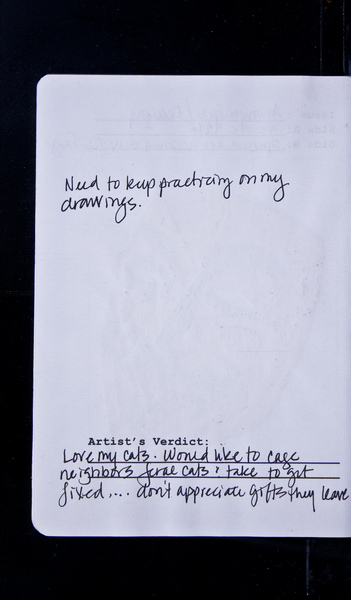 Need to keep practicing on my
drawings.
Artist's Verdict:
Love my cats. Would like to cage
neighbors feral cats & take to get
fixed.... don't appreciate gifts they leave